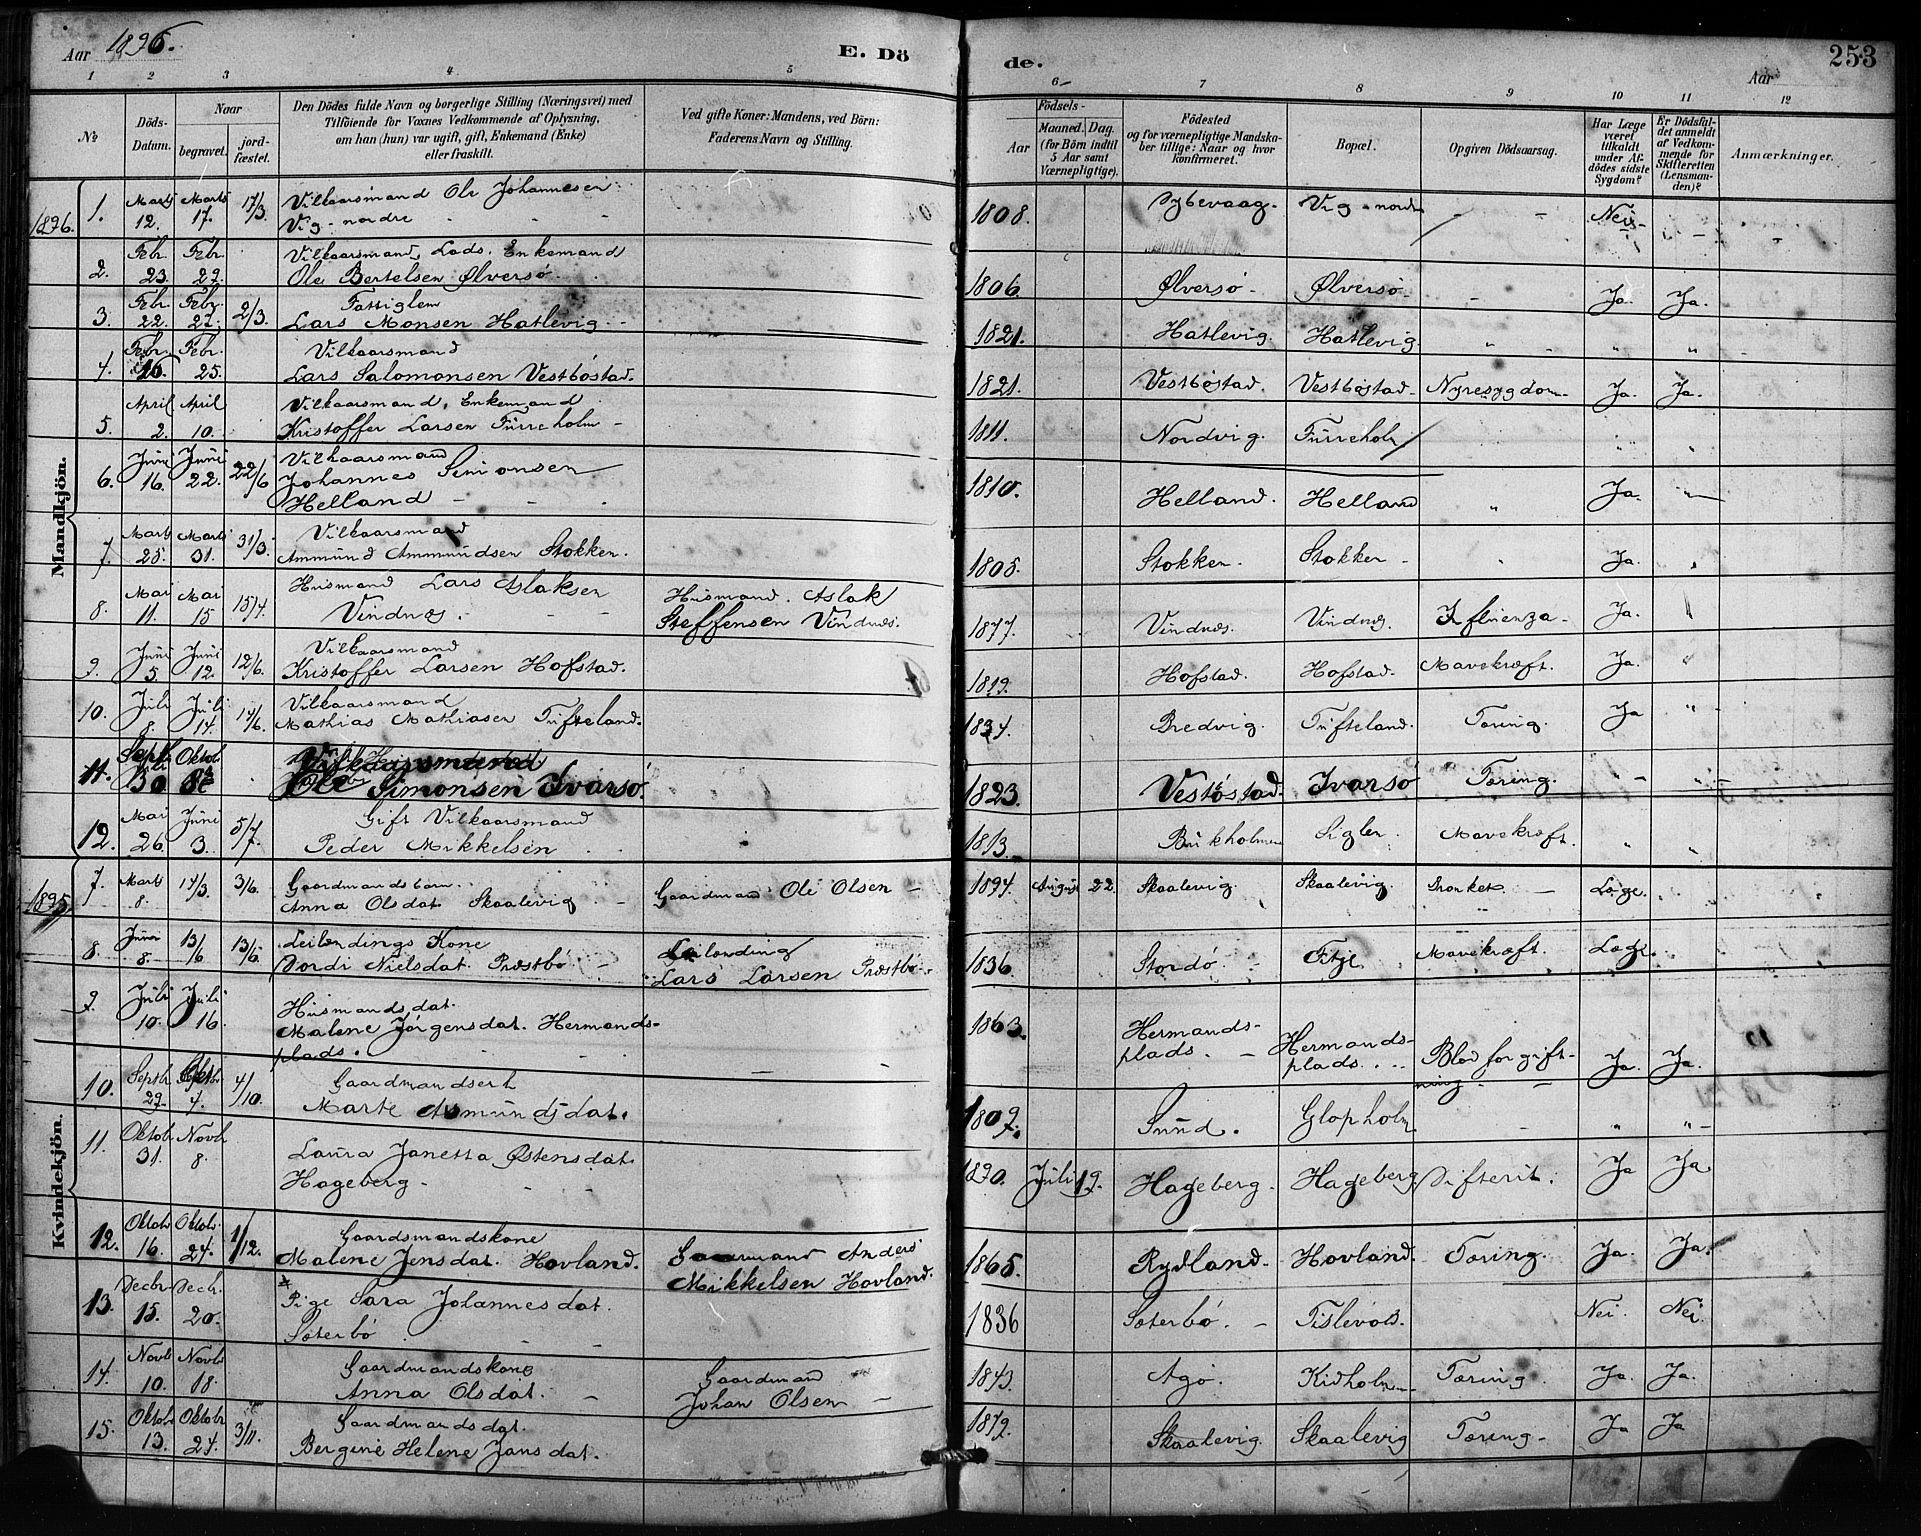 Aar 1896.
E. Döde.
Aar
253
1 2 3 4 5 6 7 8 9 10 11 12
No
Döds-Datum.
Naar
begravet.
jord-fæstet.
Den Dödes fulde Navn og borgerlige Stilling (Næringsvei) med
Tilföiende for Voxnes Vedkommende af Oplysning,
om han (hun) var ugift, gift, Enkemand (Enke)
eller fraskilt.
Ved gifte Koner: Mandens, ved Börn:
Faderens Navn og Stilling.
Födsels-
Aar
Maaned. Dag.
(for Börn indtil
5 Aar samt
Værnepligtige).
Födested
og for værnepligtige Mandska-
ber tillige: Naar og hvor
konfirmeret.
Bopæl.
Opgiven Dödsaarsag.
Har Læge
været
tilkaldt
under Af-
dödes sidste
Sygdom?
Er Dödsfal-
det anmeldt
af Vedkom-
mende for
Skifteretten
(Lensman-
den)?
Anmærkninger.
Mandkjön.
1896. 1. Marts 12. Marts 17. 17/3 Vilkaarsmand Ole Johannesen 1808. Vig nordre Nei
Vig nordre
2. Febr. 23. Febr. 27. Vilkaarsmand, Lods, Enkemand
Ole Bertelsen Ølversø 1806. Ølversø Ølversø Ja. Ja.
3. Febr. 22. Febr. 27. 2/3. Fattiglem
Lars Monsen Hatlevig 1821. Hatlevig. Hatlevig. " "
4. Febr. 16. Febr. 25. Vilkaarsmand
Lars Salomonsen Vestbøstad. 1821. Vestbøstad. Vestbøstad Nyresygdom Ja. Ja.
5. April 2. April 10. Vilkaarsmand, Enkemand
Kristoffer Larsen Furreholm 1811. Nordvig. Furreholm " "
6. Juni 16. Juni 22. 22/6 Vilkaarsmand
Johannes Simonsen
Helland 1810. Helland. Helland " Ja. "
7. Marts 25. Marts 31. 31/3. Vilkaarsmand
Ammund Ammundsen Stokken. 1805. Stokken. Stokken Ja.
8. Mai 11. Mai 15 Husmand Lars Aslaksen Husmand. Aslak
Vindnæs. Steffensen Vindnæs. 1877. Vindnæs. Vindnæs. Influenza Ja. "
9. Juni 5. Juni 12. 12/6. Vilkaarsmand
Kristoffer Larsen Hofstad. 1819. Hofstad. Hofstad. Mavekræft. Ja. "
10. Juli 8. Juli 14. 14/6. Vilkaarsmand
Mathias Mathiasen Tufteland. 1834. Bredvig. Tufteland. Tæring. Ja "
11. Septb. 30 Oktob
Simonsen Ivarsø. 1823. Ivarsø Tæring. " "
12. Mai 26. Juni 3. 5/7. Gift Vilkaarsmand
Peder Mikkelsen 1813. Sigler Mavekræft. " "
Kvindekjön.
1895 7. Marts 8. 14/3 3/6. Gaardmandsbarn. Gaardmand Ole Olsen 1894. August 22. Skaalevig. Skaalevig. Læge.
Anna Olsdat. Skaalevig
8. 8. 13/6 13/6. Leilændings Kone Leilænding
Nielsdat. Præstbø Lars Larsen Præstbø. 1836. Stordø. Mavekræft. Læge.
9. Juli 10. Juli 16. Husmandsdat.
Malene Jørgensdat. Hermands-
plads. 1863. Hermands-
plads. Hermands-
plads. Blodforgift-
ning. Ja. Ja.
10. Septb. 29. 4. 4/10. Gaardmands
Marte Asmundsdat. 1809. Sund. Glopholm. " "
11. Oktob 31. Novb 8. Laura Janetta Østensdat. 1890. Juli 19. Hageberg. Hageberg Difterit. Ja Ja
Hageberg.
12. Oktob. 16. Oktob. 24. 1/12. Gaardsmandskone Gaarmand Anders
Malene Jensdat. Hovland. Mikkelsen Hovland. 1865. Rydland. Hovland. Tæring. Ja. Ja.
13. Decbr 15. Decbr. 20. Pige Sara Johannesdat. 1836 Sæterbø. Tislevold. Nei. Nei.
Sæterbø
14. Novb 10. Novb 18 Gaardmandskone Gaardmand
Anna Olsdat. Johan Olsen 1843. Agø. Kidholm Tæring. Ja Ja
15. Oktob 13. Oktob 24. 3/11. Gaardmandsdat.
Bergine Helene Jansdat. 1872. Skaalevig. Skaalevig Tæring. Ja Ja